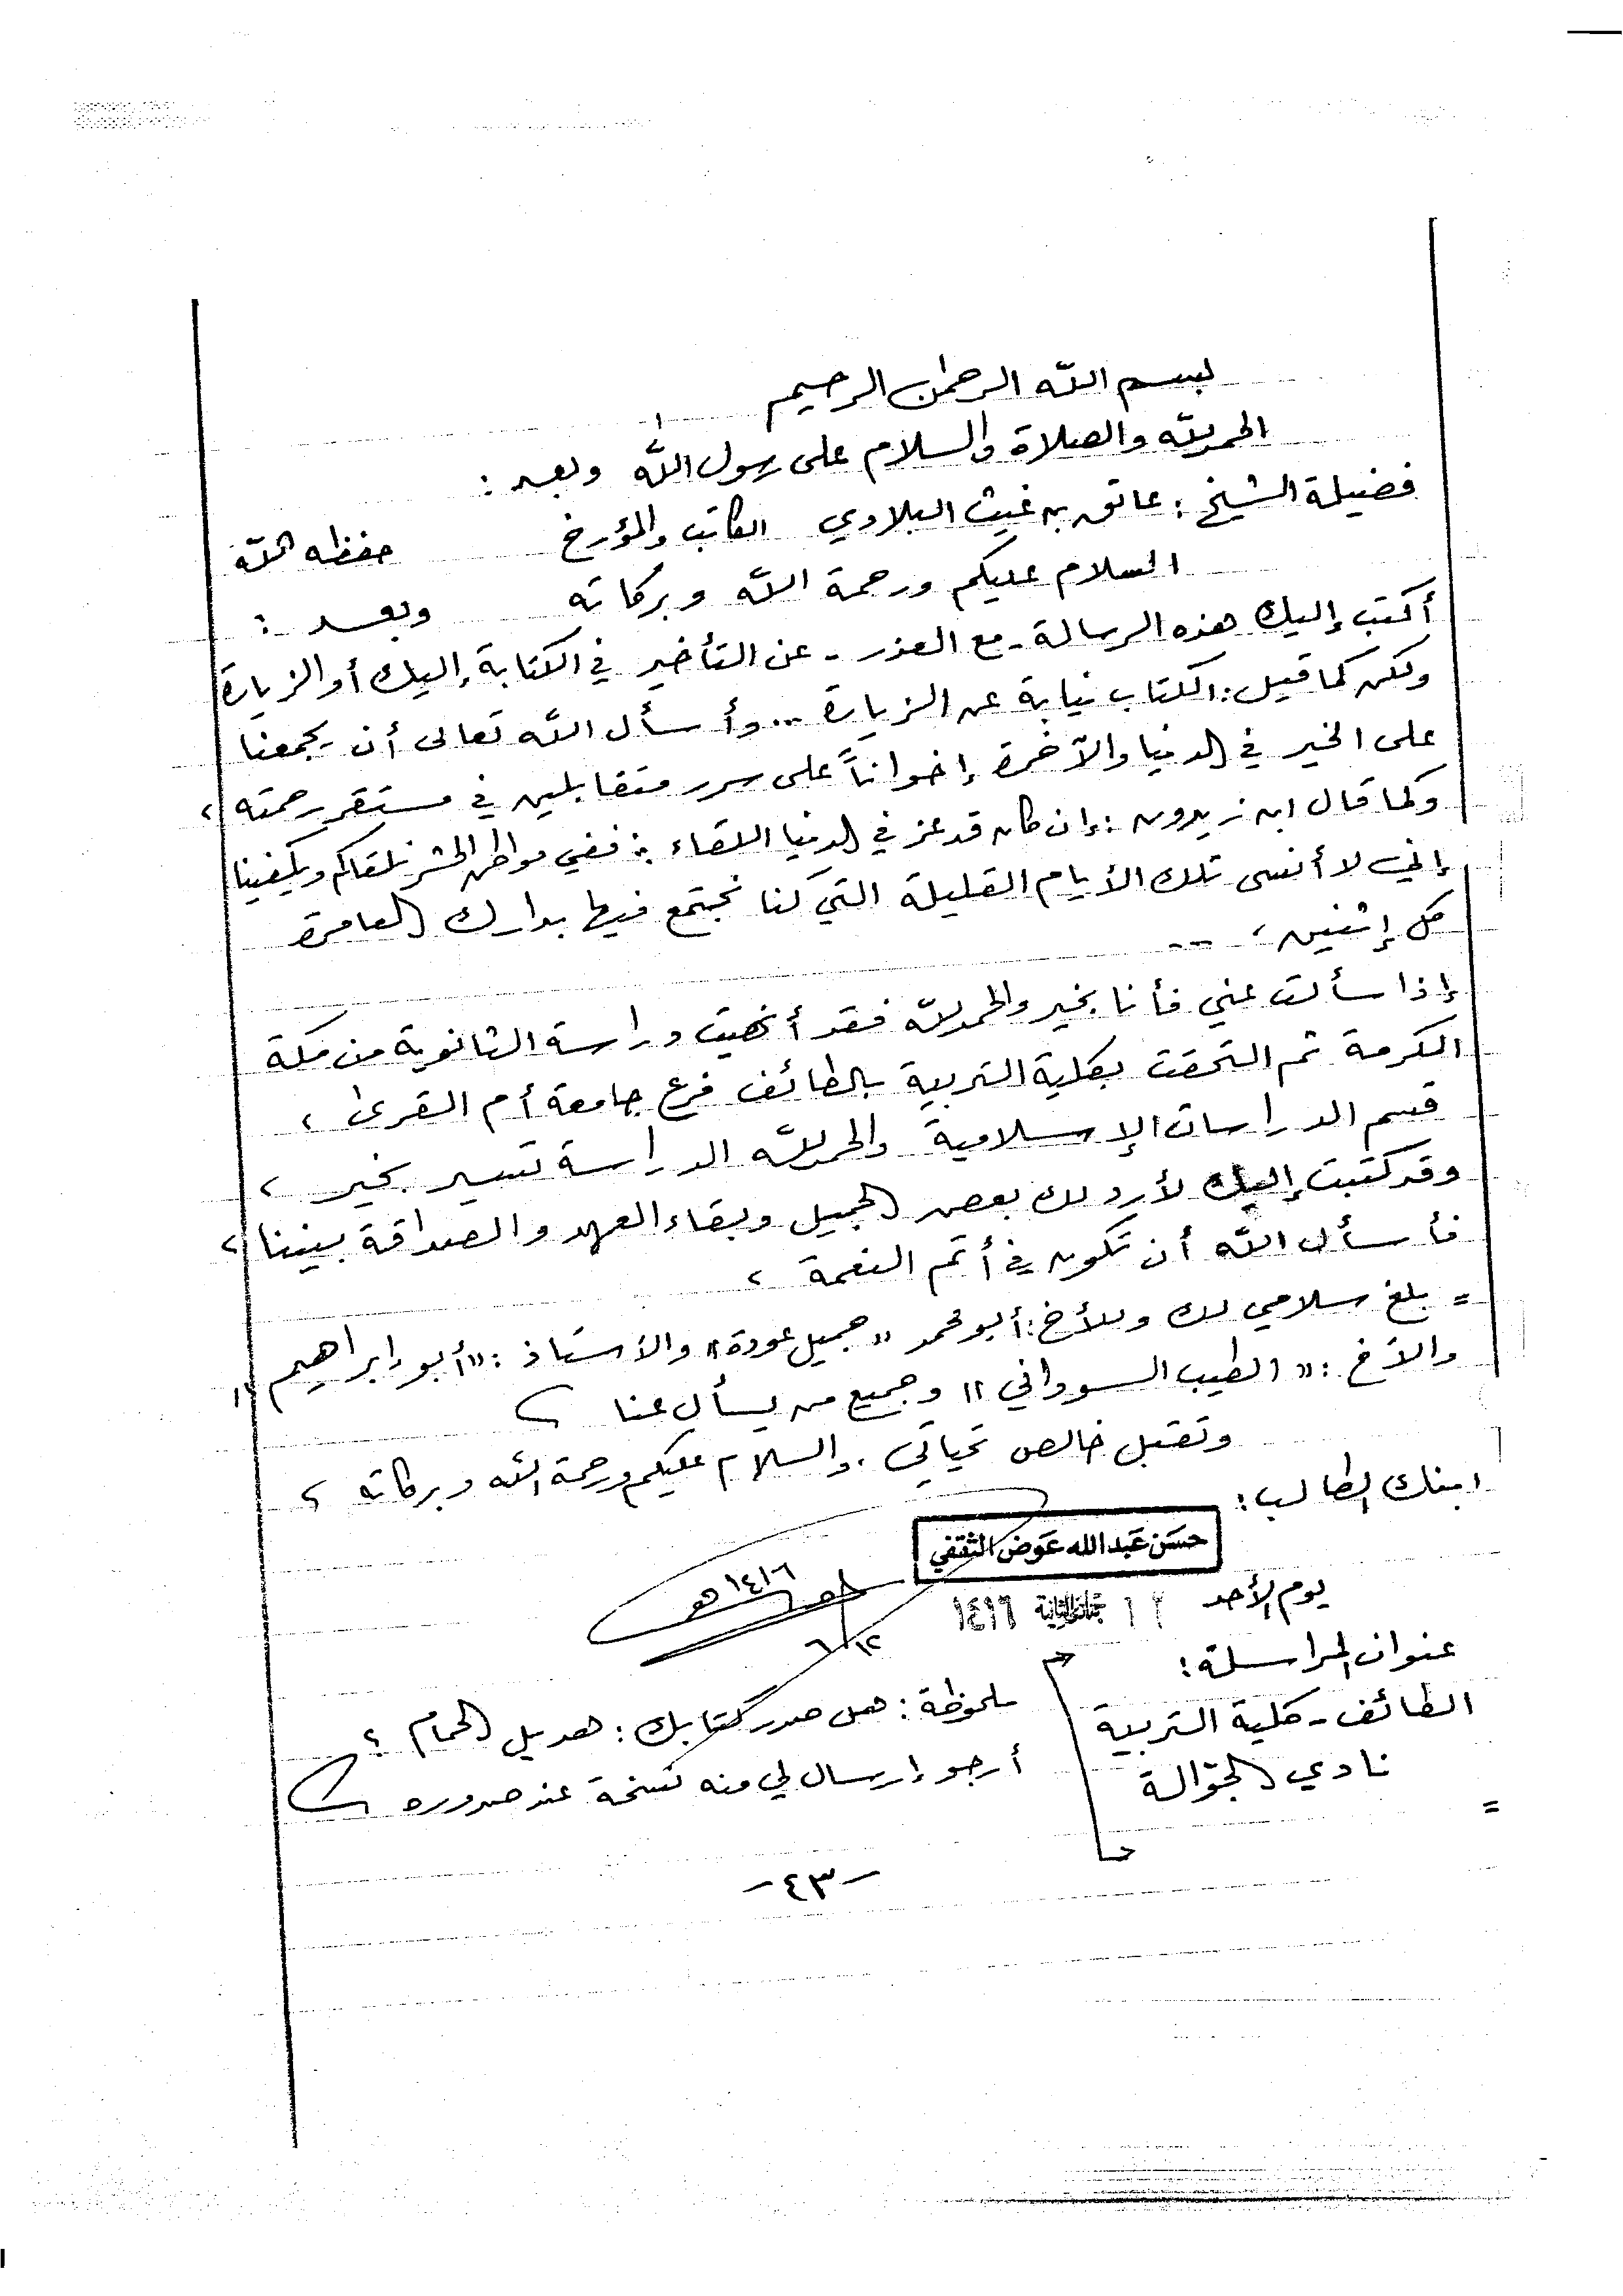 بسم الله الرحمن الرحيم
الحمد لله والصلاة والسلام على رسول الله وبعد :
فضيلة الشيخ : عاتق بن غيث البلادي الكاتب والمؤرخ حفظه الله
السلام عليكم ورحمة الله وبركاته وبعد :
أكتب إليك هذه الرسالة - مع العذر - عن التأخير في الكتابة إليك أو الزيارة
ولكن كما قيل : الكتاب نيابة عن الزيارة ... وأسأل الله تعالى أن يجمعنا
على الخير في الدنيا والآخرة إخواناً على سرر متقابلين في مستقر رحمته ،
وكما قال ابن زيدون : إن كان قد عز في الدنيا اللقاء : ففي مواطن الحشر نلقاكم ويكفينا
إني لا أنسى تلك الأيام القليلة التي كنا نجتمع فيها بدارك العامرة
كل إثنين ، ---
إذا سألت عني فأنا بخير والحمد لله فقد أنهيت دراسة الثانوية من مكة
المكرمة ثم التحقت بكلية التربية بالطائف فرع جامعة أم القرى ،
قسم الدراسات الإسلامية والحمد لله الدراسة تسير بخير ،
وقد كتبت إليك لأرد لك بعض الجميل وبقاء العهد والصداقة بيننا ،
فأسأل الله أن تكون في أتم النعمة ،
= بلغ سلامي لك وللأخ : أبو محمد " جميل عودة " والأستاذ : " أبو إبراهيم "
والأخ : " الطيب السوداني " وجميع من يسأل عنا
وتقبل خالص تحياتي . والسلام عليكم ورحمة الله وبركاته ،
ابنك الطالب :
حسَن عَبدالله عَوض الثقفي
١٤١٦ هـ
يوم الأحد ١٢ جمادى الثانية ١٤١٦
٦/١٢
عنوان المراسلة :
الطائف - كلية التربية
نادي الجوّالة
ملحوظة : هل صدر كتابك : هديل الحمام ؟
أرجو إرسال لي منه نسخة عند صدوره
=
- ٤٣ -